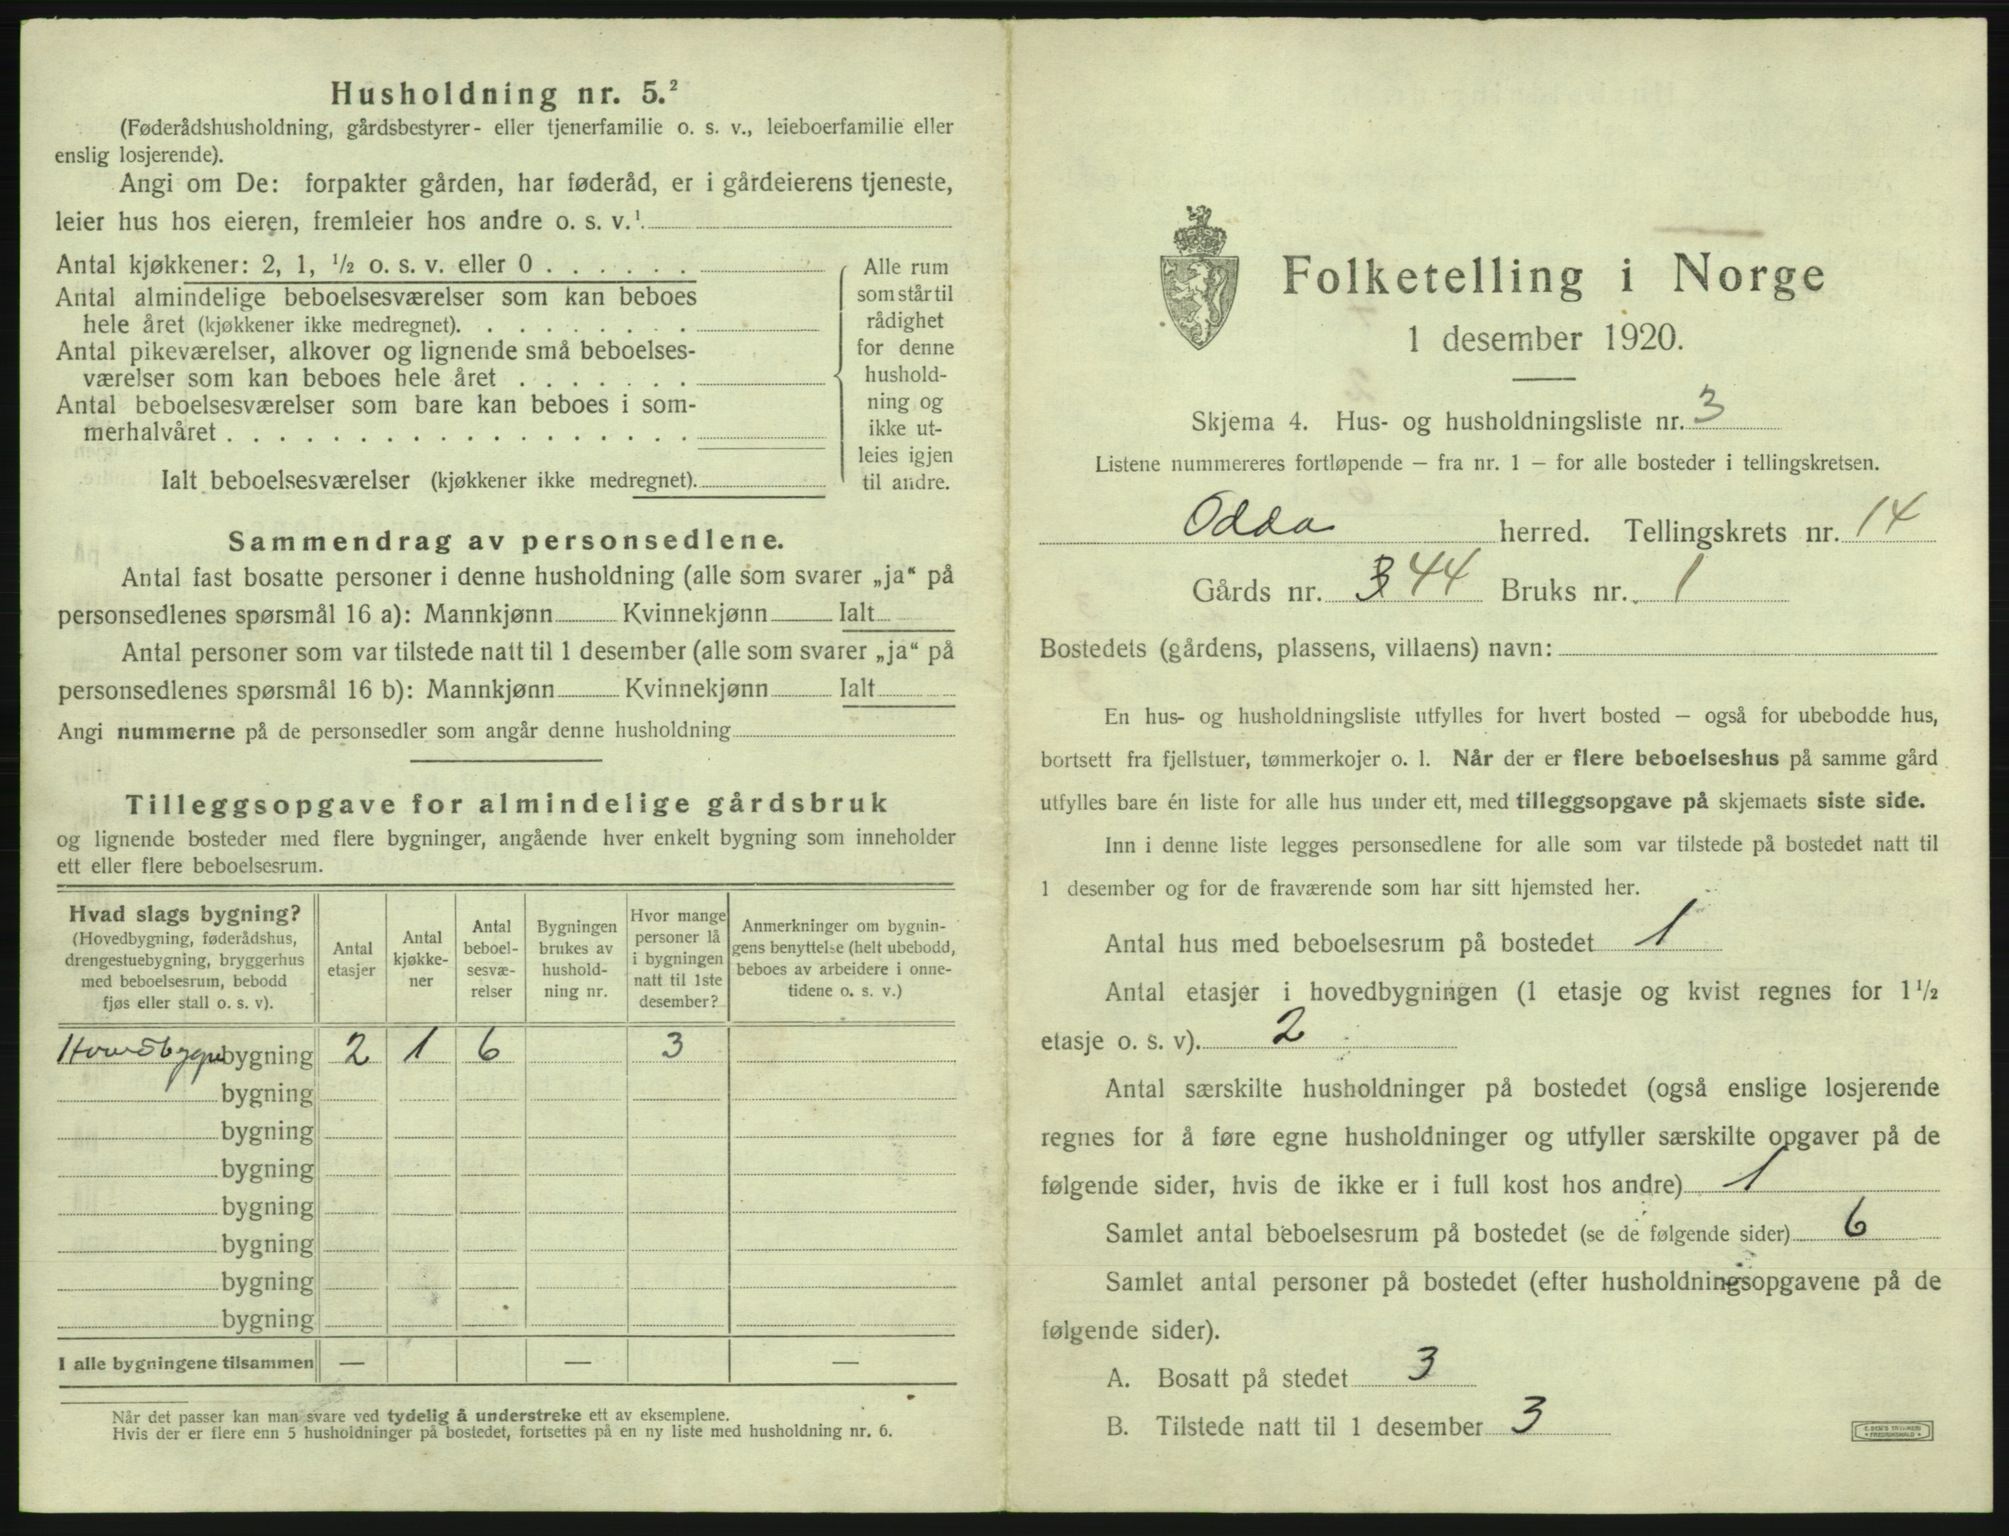 Husholdning nr. 5.²
(Føderådshusholdning, gårdsbestyrer- eller tjenerfamilie o. s. v., leieboerfamilie eller
enslig losjerende).
Angi om De: forpakter gården, har føderåd, er i gårdeierens tjeneste,
leier hus hos eieren, fremleier hos andre o. s. v.¹
Antal kjøkkener: 2, 1, ½ o. s. v. eller 0 . . . . . .
Antal almindelige beboelsesværelser som kan beboes
hele året (kjøkkener ikke medregnet). . . . . . . . .
Antal pikeværelser, alkover og lignende små beboelses-
værelser som kan beboes hele året . . . . . . .
Antal beboelsesværelser som bare kan beboes i som-
merhalvåret . . . . . . . . . . . . . . . . . .
Ialt beboelsesværelser (kjøkkener ikke medregnet).
Alle rum
som står til
rådighet
for denne
hushold-
ning og
ikke ut-
leies igjen
til andre.
Sammendrag av personsedlene.
Antal fast bosatte personer i denne husholdning (alle som svarer „ja“ på
personsedlenes spørsmål 16 a): Mannkjønn Kvinnekjønn Ialt
Antal personer som var tilstede natt til 1 desember (alle som svarer „ja“ på
personsedlenes spørsmål 16 b): Mannkjønn Kvinnekjønn Ialt
Angi nummerne på de personsedler som angår denne husholdning
Tilleggsopgave for almindelige gårdsbruk
og lignende bosteder med flere bygninger, angående hver enkelt bygning som inneholder
ett eller flere beboelsesrum.
Hvad slags bygning?
(Hovedbygning, føderådshus,
drengestuebygning, bryggerhus
med beboelsesrum, bebodd
fjøs eller stall o. s. v).
Antal
etasjer
Antal
kjøkke-
ner
Antal
beboel-
sesvæ-
relser
Bygningen
brukes av
hushold-
ning nr.
Hvor mange
personer lå
i bygningen
natt til 1ste
desember?
Anmerkninger om bygnin-
gens benyttelse (helt ubebodd,
beboes av arbeidere i onne-
tidene o. s. v.)
bygning 2 1 6 3
bygning
bygning
bygning
bygning
bygning
bygning
bygning
I alle bygningene tilsammen — — —
Når det passer kan man svare ved tydelig å understreke ett av eksemplene.
Hvis der er flere enn 5 husholdninger på bostedet, fortsettes på en ny liste med husholdning nr. 6.
Folketelling i Norge
1 desember 1920.
Skjema 4. Hus- og husholdningsliste nr. 3
Listene nummereres fortløpende – fra nr. 1 – for alle bosteder i tellingskretsen.
Odda herred. Tellingskrets nr. 14
Gårds nr. 44 Bruks nr. 1
Bostedets (gårdens, plassens, villaens) navn:
En hus- og husholdningsliste utfylles for hvert bosted – også for ubebodde hus,
bortsett fra fjellstuer, tømmerkojer o. l. Når der er flere beboelseshus på samme gård
utfylles bare én liste for alle hus under ett, med tilleggsopgave på skjemaets siste side.
Inn i denne liste legges personsedlene for alle som var tilstede på bostedet natt til
1 desember og for de fraværende som har sitt hjemsted her.
Antal hus med beboelsesrum på bostedet 1
Antal etasjer i hovedbygningen (1 etasje og kvist regnes for 1½
etasje o. s. v). 2
Antal særskilte husholdninger på bostedet (også enslige losjerende
regnes for å føre egne husholdninger og utfyller særskilte opgaver på de
følgende sider, hvis de ikke er i full kost hos andre) 1
Samlet antal beboelsesrum på bostedet (se de følgende sider) 6
Samlet antal personer på bostedet (efter husholdningsopgavene på de
følgende sider).
A. Bosatt på stedet 3
B. Tilstede natt til 1 desember 3